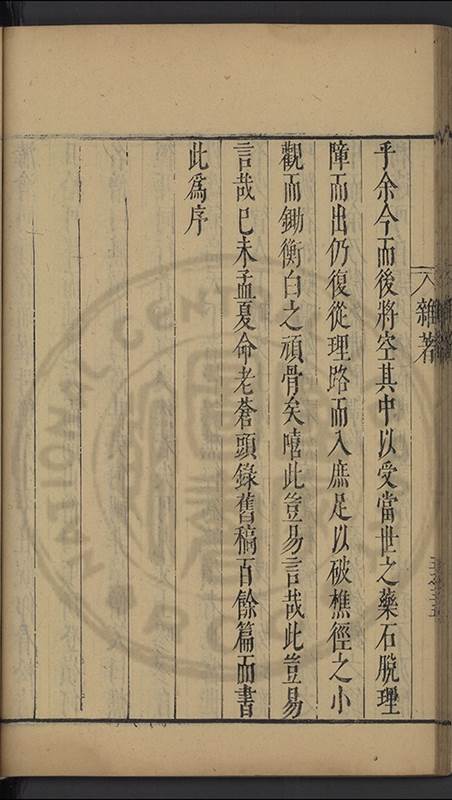 乎余今而後將空其中以受當世之藥石脫理
障而出仍復從理路而入庶足以破樵徑之小
觀而鋤衡白之頑骨矣嘻此豈易言哉此豈易
言哉己未孟夏命老蒼頭錄舊稿百餘篇而書
此爲序
雜著